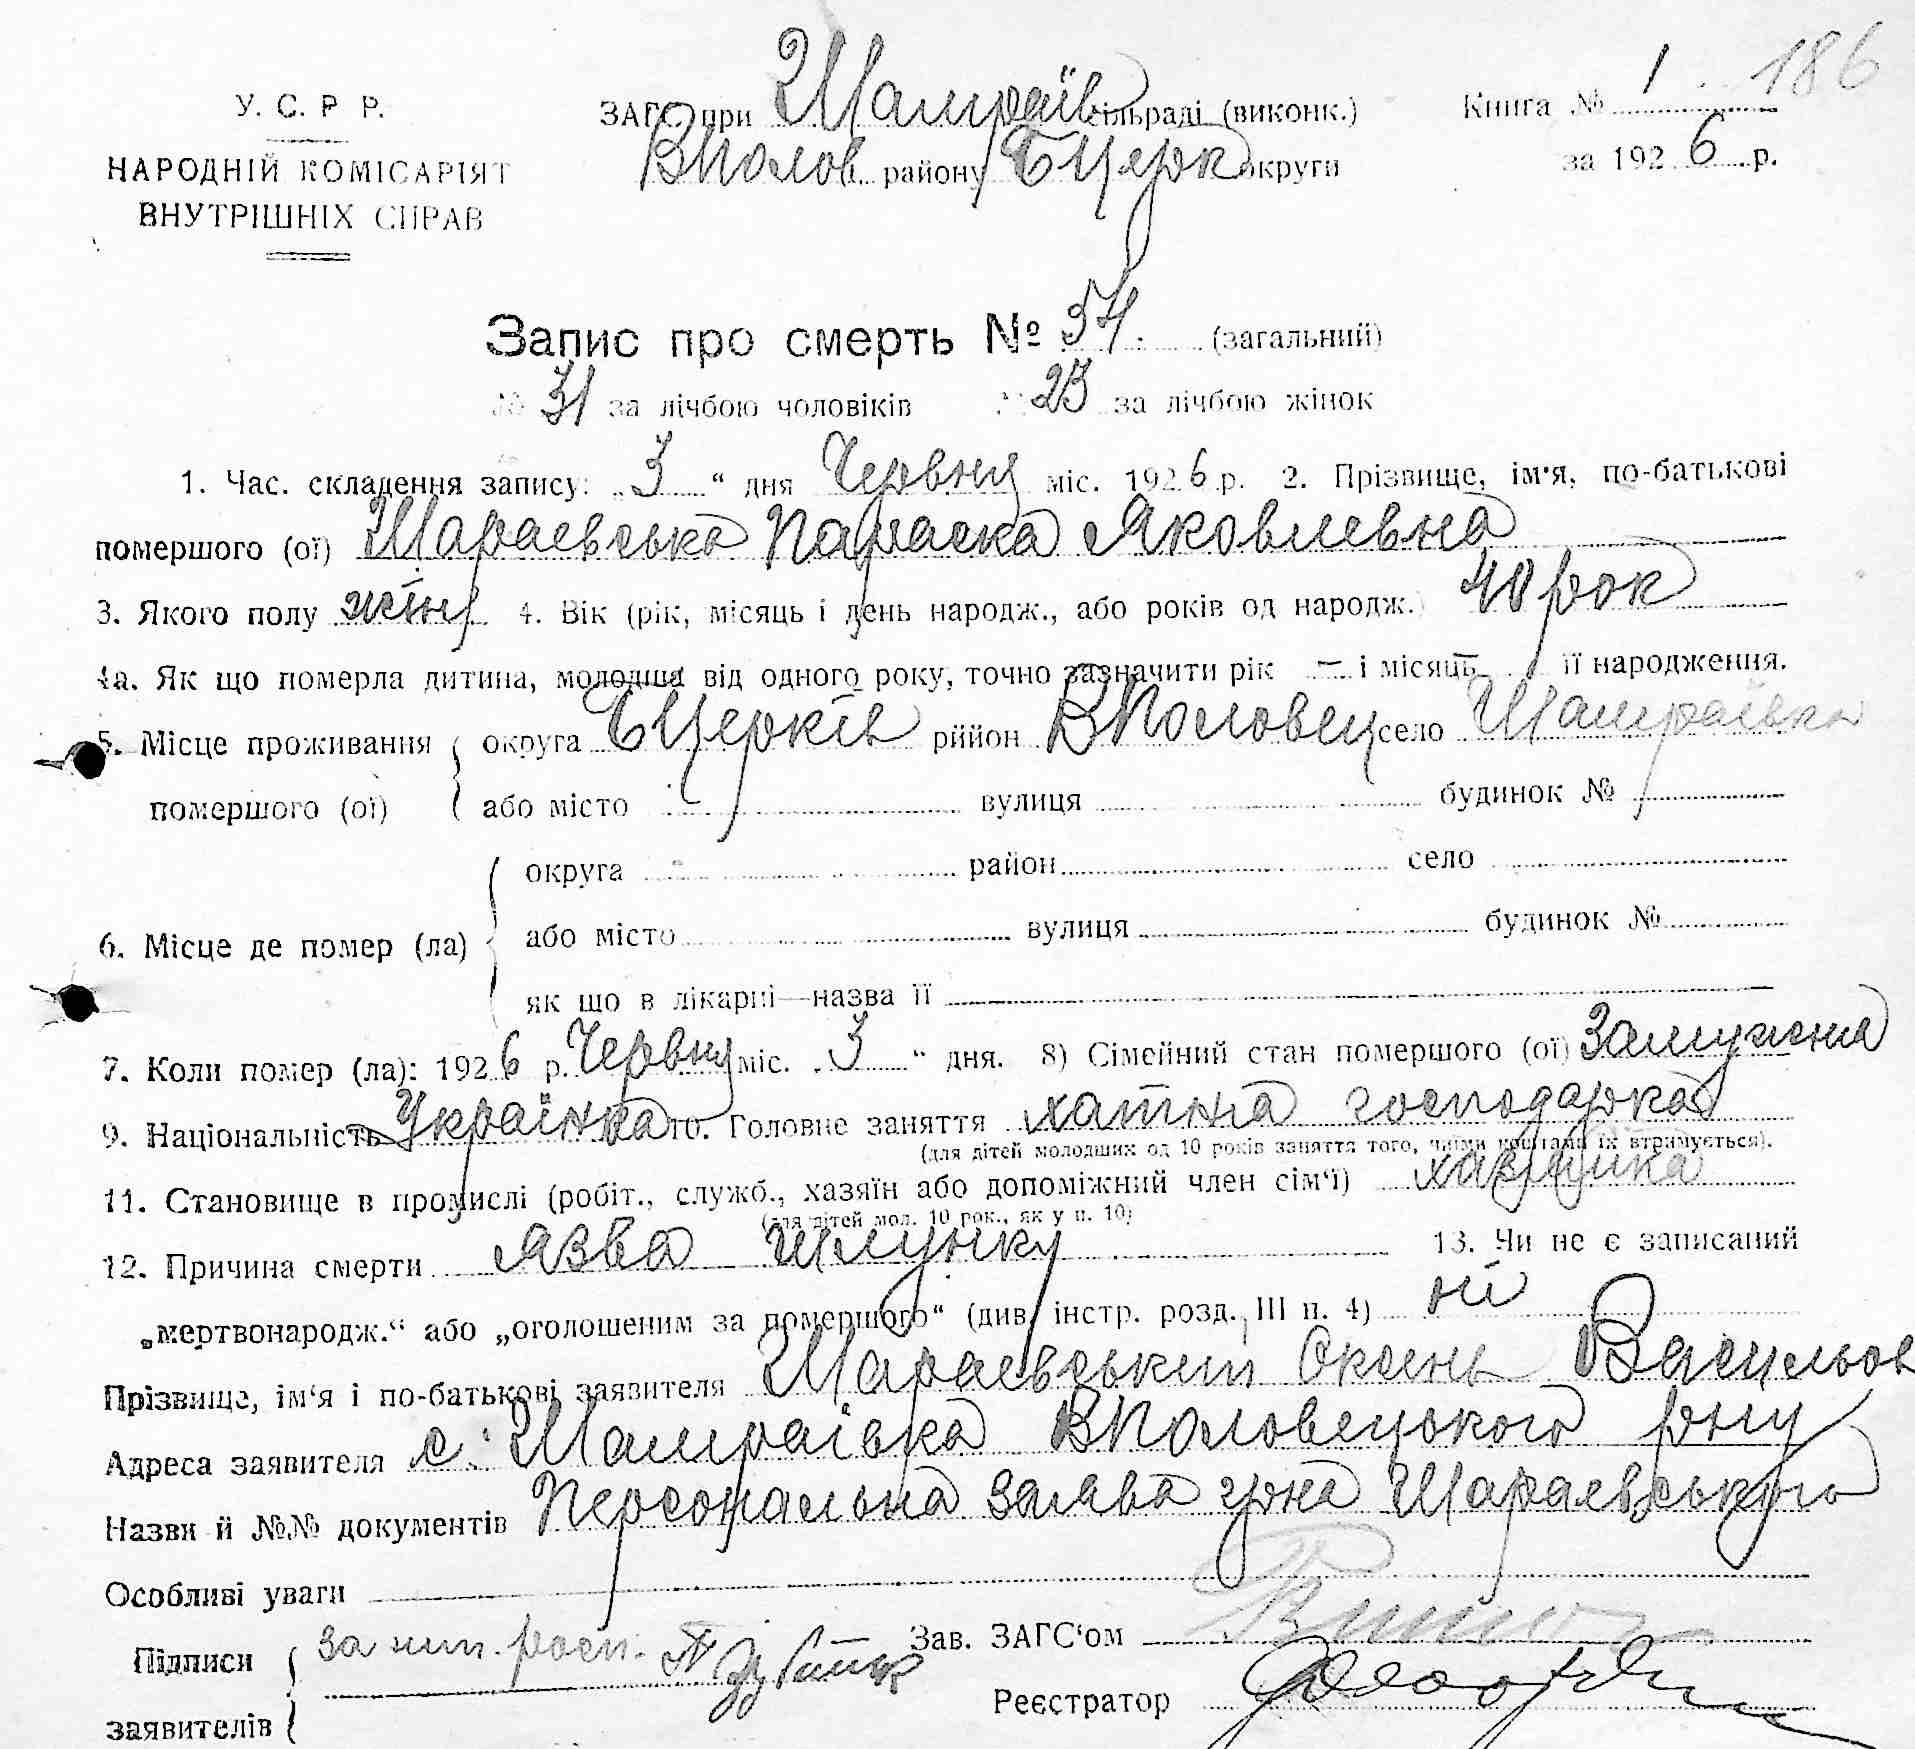 186
У. С. Р Р.
НАРОДНІЙ КОМІСАРІЯТ
ВНУТРІШНІХ СПРАВ
ЗАГС при Шамраїв сільраді (виконк.)
ВПолов району БЦерк округи
Книга № 1
за 1926 р.
Запис про смерть № 54. (загальний)
№ 31 за лічбою чоловіків № 23 за лічбою жінок
1. Час. складення запису: „3“ дня Червня міс. 1926 р. 2. Прізвище, ім'я, по-батькові
помершого (ої) Шараевська Параска Яковлевна
3. Якого полу жін 4. Вік (рік, місяць і день народж., або років од народж.) 40 рок
4а. Як що померла дитина, молодша від одного року, точно зазначити рік — і місяць її народження.
5. Місце проживання округа БЦерків рйон ВПоловец село Шамраївка
помершого (ої) або місто вулиця будинок №
округа район село
6. Місце де помер (ла) або місто вулиця будинок №
як що в лікарні—назва її
7. Коли помер (ла): 1926 р. Червня міс. „3“ дня. 8) Сімейний стан помершого (ої) Замужня
9. Національність Українка 10. Головне заняття хатня господарка
(для дітей молодших од 10 років заняття того, чиїми коштами їх втримується).
11. Становище в промислі (робіт., служб., хазяїн або допоміжний член сім'ї) хазяйка
(для дітей мол. 10 рок., як у п. 10)
12. Причина смерти язва шлунку 13. Чи не є записаний
„мертвонародж.“ або „оголошеним за помершого“ (див. інстр. розд. III п. 4) ні
Прізвище, ім'я і по-батькові заявителя Шараевський Оксень Васильов
Адреса заявителя с. Шамраівка ВПоловецького рну
Назви й №№ документів Персональна заява грна Шараевського
Особливі уваги
Підписи за нип. росп.
заявителів
Зав. ЗАГС'ом
Реєстратор